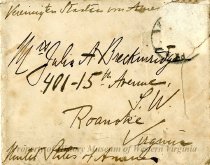 Vereinigten Staaten von Amer
Mrs John A Breckinridge
401-15th Avenue,
S.W.
Roanoke
Virginia
United States of America
Property of History Museum of Western Virginia